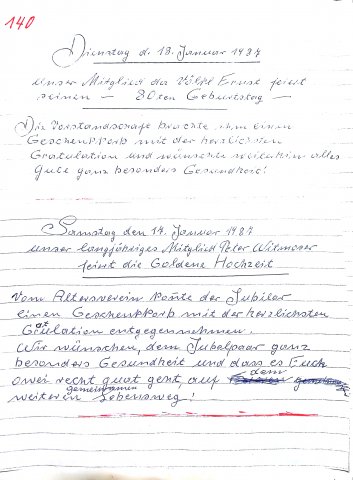 140
Dienstag d. 13. Januar 1987
unser Mitglied der Völkl Ernst feiert
seinen – 80ten Geburtstag –
Die Vorstandschaft brachte ihm einen
Geschenkkorb mit der herzlichsten
Gratulation und wünscht weiterhin alles
Gute ganz besonders Gesundheit!
Samstag den 14. Januar 1987
unser langjähriges Mitglied Peter
feiert die Goldene Hochzeit
Vom Altersverein konte der Jubilar
einen Geschenkkorb mit der herzlichsten
Gratulation entgegennehmen.
Wir wünschen, dem Jubelpaar ganz
besonders Gesundheit und dass es Euch
recht guat geht, auf dem
gemeinsamen
weiteren Lebensweg!